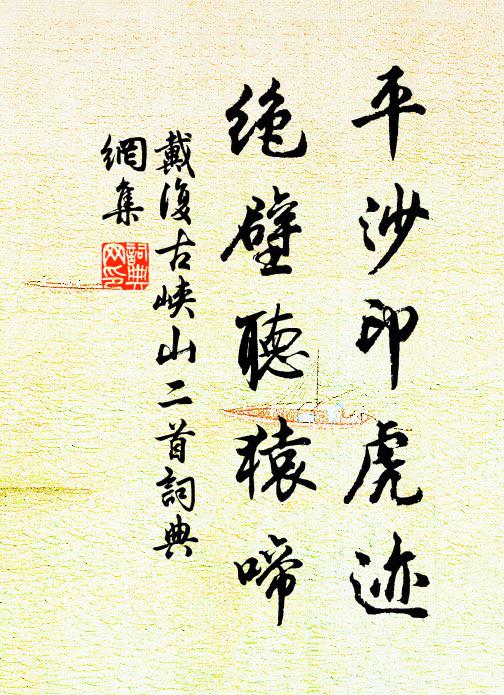 平沙印虎迹
绝壁聽猿啼
戴復古峡山二首詞典
網集
詞典
网印